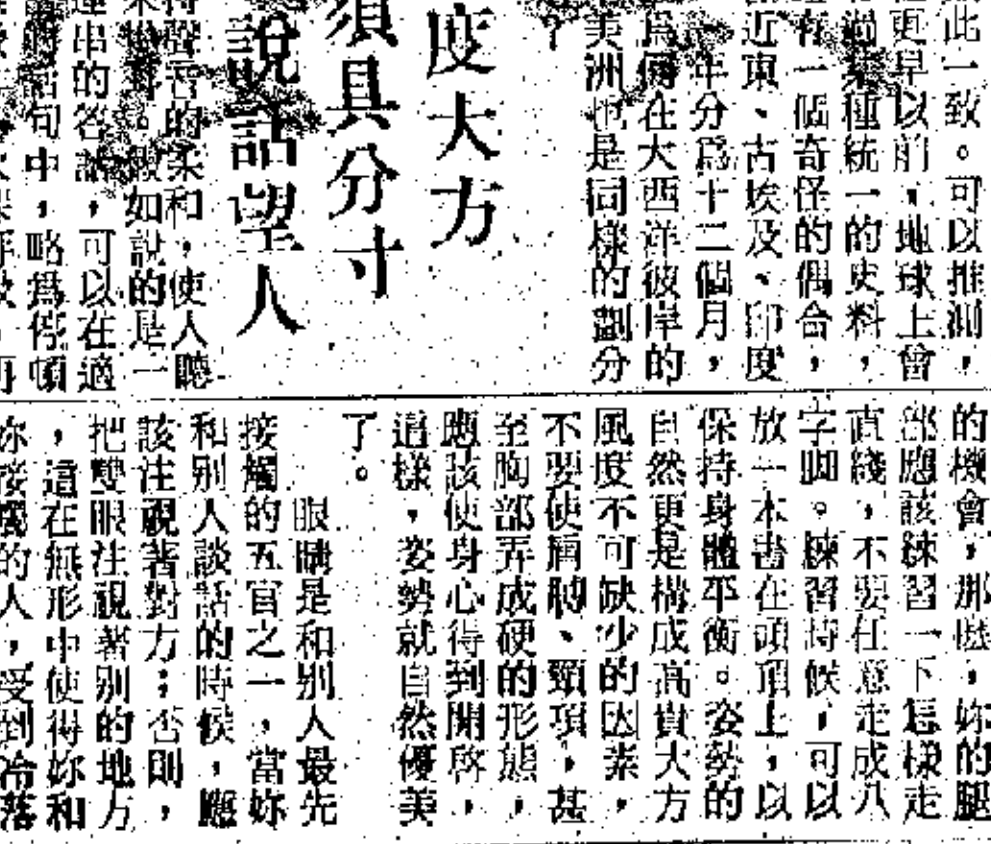 此一致。可以推測，
更早以前，地球上會
過某種統一的史料，
有一個奇怪的偶合，
近東、古埃及、印度
年分爲十二個月，
爲何在大西洋彼岸的
美洲也是同樣的劃分
？
度大方
須具分寸
說話望人
聲音的柔和，使人聽
。假如說的是一
連串的答話，可以在適
話句中，略爲停頓
的機會，那麼，妳的腿
部應該練習一下怎樣走
直綫，不要任意走成八
字脚。練習時候，可以
放一本書在頭頂上，以
保持身體平衡。姿勢的
自然更是構成高貴大方
風度不可缺少的因素，
不要使肩膊、頸項，甚
至胸部弄成硬的形態，
應該使身心得到開啓，
這樣，姿勢就自然優美
了。
眼睛是和别人最先
接觸的五官之一，當妳
和别人談話的時候，應
該注視著對方；否則，
把雙眼注視著别的地方
，這在無形中使得妳和
妳接觸的人，受到冷落